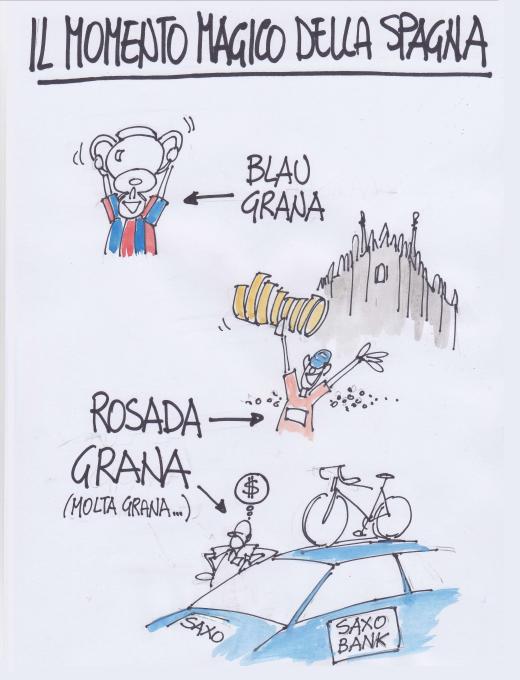 IL MOMENTO MAGICO DELLA SPAGNA
BLAU
GRANA
ROSADA
GRANA
(MOLTA GRANA...)
$
SAXO
SAXO
BANK